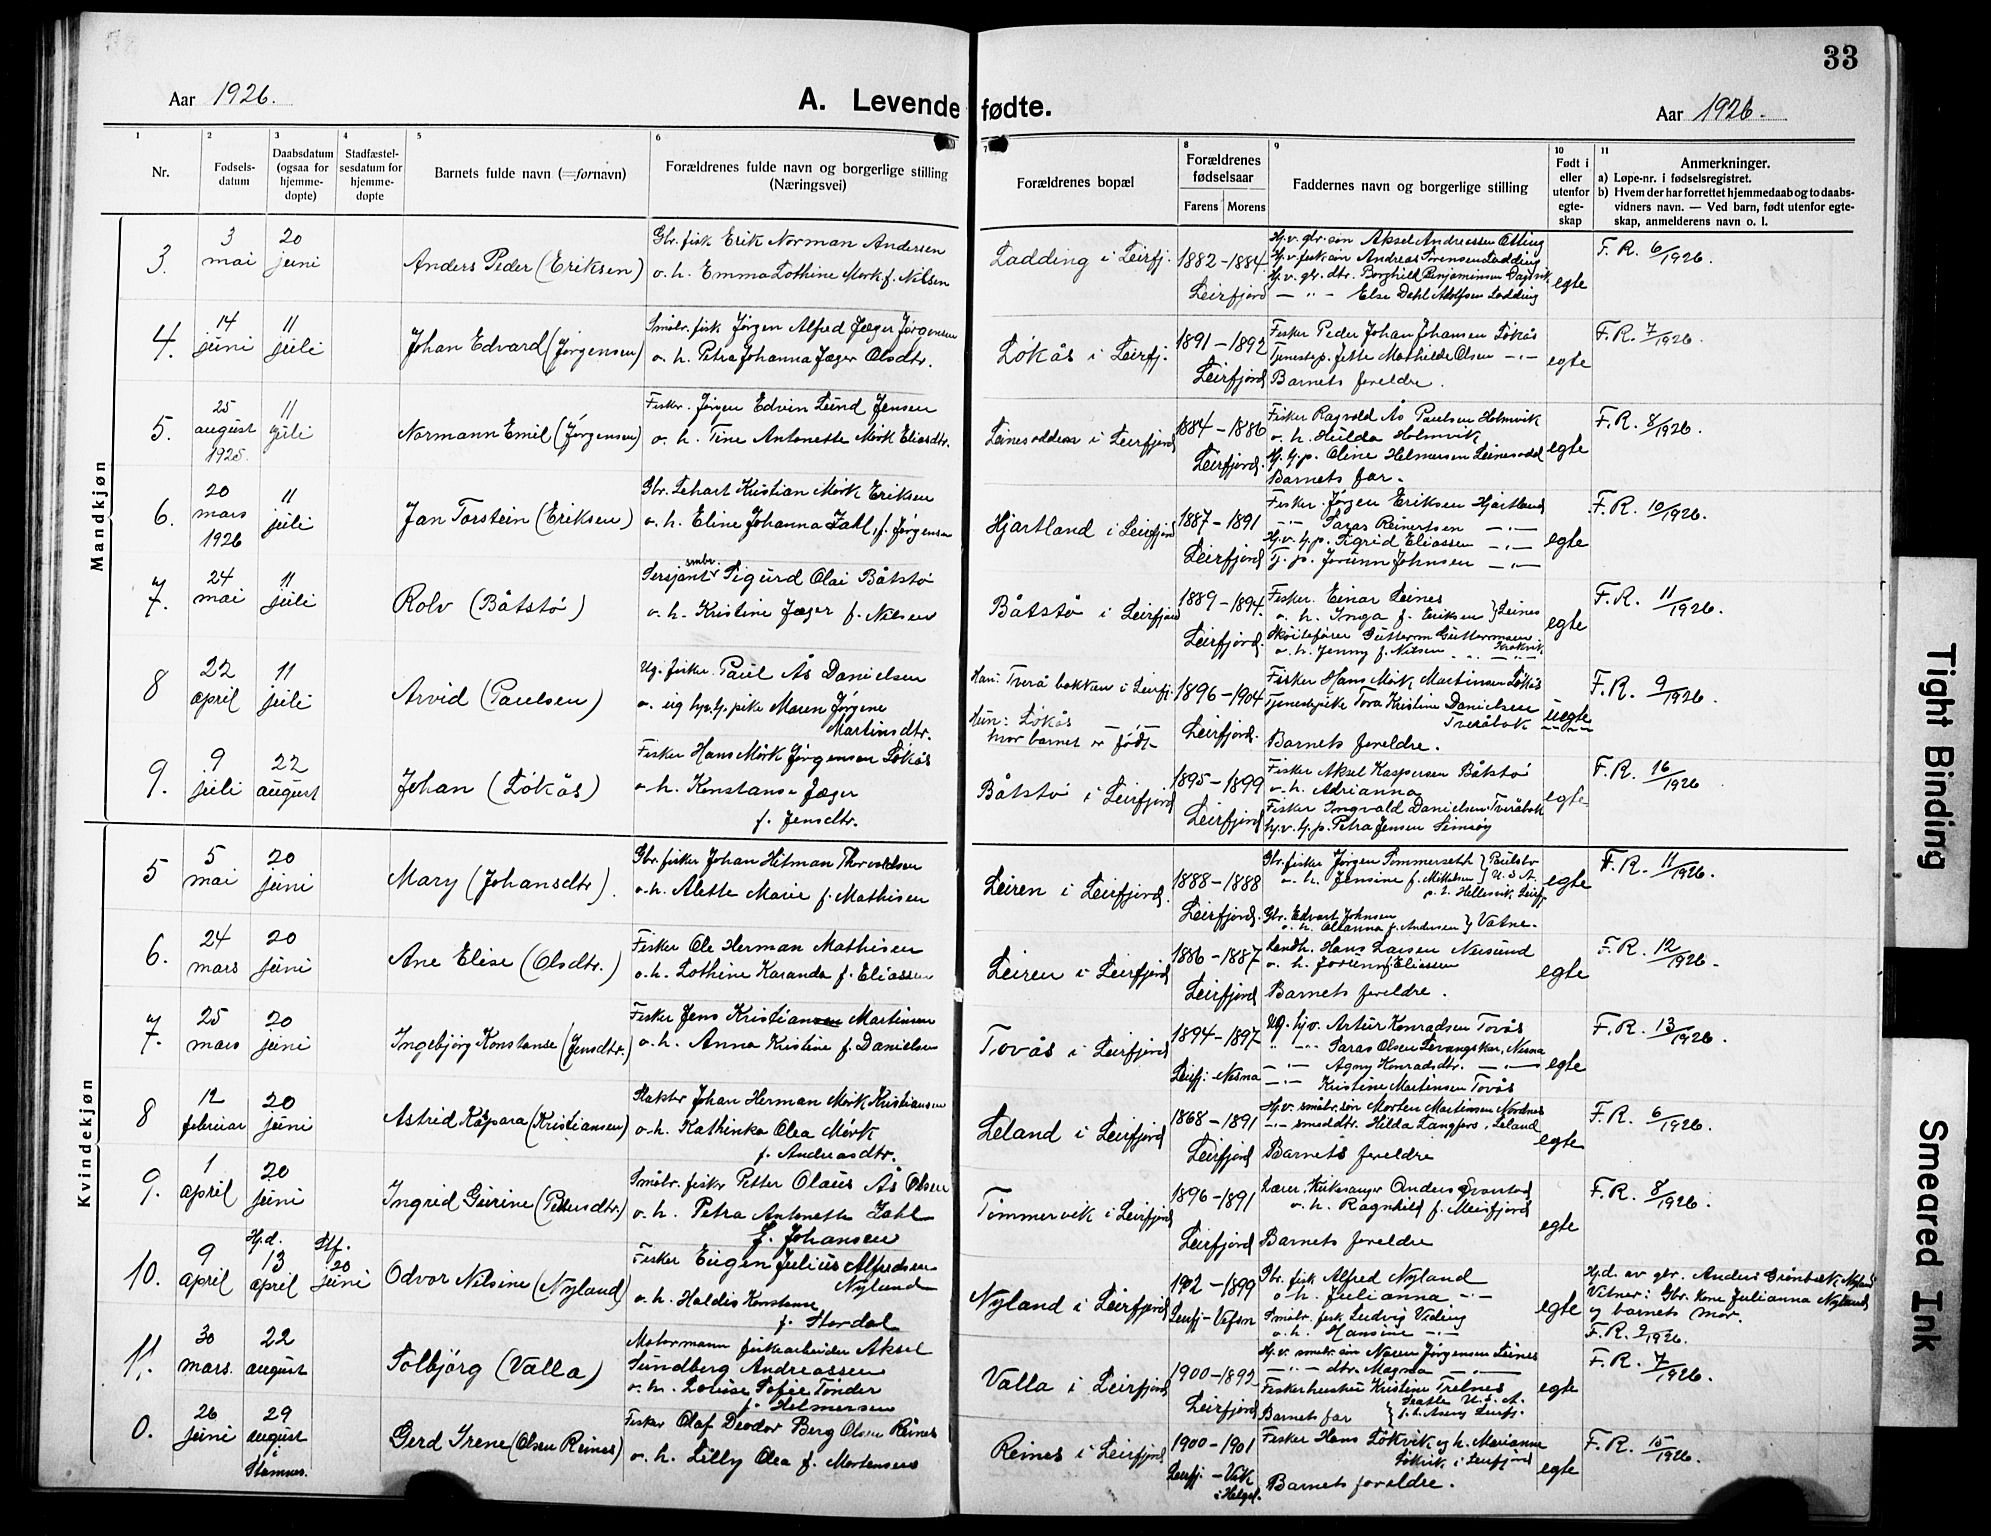 33
Aar 1926.
A. Levende fødte.
Aar 1926.
1
2
3
4
5
6
7
8
9
10
11
Nr.
Fødsels-
datum
Daabsdatum
(ogsaa for
hjemme-
døpte)
Stadfæstel-
sesdatum for
hjemme-
døpte
Barnets fulde navn (=fornavn)
Forældrenes fulde navn og borgerlige stilling
(Næringsvei)
Forældrenes bopæl
Forældrenes
fødselsaar
Farens Morens
Faddernes navn og borgerlige stilling
Født i
eller
utenfor
egte-
skap
Anmerkninger.
a) Løpe-nr. i fødselsregistret.
b) Hvem der har forrettet hjemmedaab og to daabs-
vidners navn. — Ved barn, født utenfor egte-
skap, anmelderens navn o. l.
Mandkjøn
3.
3
mai
20
juni
Anders Peder (Eriksen)
Gbr. fisk Erik Norman Andersen
o. h. Emma Lothine Mørk f. Nilsen
Ladding i Leirfj.
1882-1884
Leirfjord
Hj.v. gbr. søn Aksel Andreassen Otting
Hj.v. fisk søn Andreas Sørensen Ladding
Hj.v. gbr. dtr. Borghild Benjaminsen Dagsvik
— " — Else Dahl Adolfsen Ladding
egte
F. R. 6/1926.
4.
14
juni
11
juli
Johan Edvard (Jørgensen)
Småbr. fisk Jørgen Alfred Jæger Jørgensen
o. h. Petra Johanna Jæger Olsdtr.
Løkås i Leirfj.
1891-1892
Leirfjord
Fisker Peder Johan Johansen Løkås
Tjenestep. Jette Mathilde Olsen —"—
Barnets foreldre.
egte
F. R. 7/1926.
5.
25
august
1925.
11
juli
Normann Emil (Jørgensen)
Fisker. Jørgen Edvin Lund Jensen
o. h. Tine Antonette Mørk Eliasdtr.
Leinesodden i Leirfjord
1884-1886
Leirfjord.
Fisker Ragvald Ås Paulsen Holmvik
o. h. Hulda Holmvik
Hj. g. p. Oline Helmersen Leinesodd
Barnets far.
egte
F. R. 8/1926.
6.
20
mars
1926
11
juli
Jan Torstein (Eriksen)
Gbr. Lehart Kristian Mørk Eriksen
o. h. Eline Johanna Zahl, f. Jørgensen
Hjartland i Leirfjord
1887-1891
Leirfjord
Fisker. Jørgen Eriksen Hjartland
—"— Paras Reinertsen —"—
Hj.v. g. p. Sigrid Eliassen —"—
Tj. p. Jorunn Johnsen —"—
egte
F. R. 10/1926.
7.
24
mai
11
juli
Rolv (Båtstø)
Sersjant smbr. Sigurd Olai Båtstø
o. h. Kristine Jæger f. Nilsen
Båtstø i Leirfjord
1889-1894.
Leirfjord.
Fisker. Einar Leines
o. h. Inga f. Eriksen } Leines
Skøitefører Guttorm Guttormsen
o. h. Jenny f. Nilsen Krokvik
egte
F. R. 11/1926.
8
22
april
11
juli
Arvid (Paulsen)
Ug. fisker. Paul Ås Danielsen
o. ug. hjv. g. pike Maren Jørgine
Martinsdtr.
Han: Tveråbakken i Leirfj.
Hun: Løkås
hvor barnet er født
1896-1904
Leirfjord.
Fisker Hans Mørk Martinsen Løkås
Tjenestepike Tora Kristine Danielsen
Tveråbak
Barnets foreldre.
uegte
F. R. 9/1926.
9.
9
juli
22
august
Johan (Løkås)
Fisker Hans Mørk Jørgensen Løkås
o. h. Konstanse Jæger
f. Jensdtr.
Båtstø i Leirfjord
1895-1899
Leirfjord.
Fisker Aksel Kaspersen Båtstø
o. h. Adrianna
Fisker Ingvald Danielsen Tveråbak
hj.v. g. p. Petra Jensen Simsøy
egte
F. R. 16/1926
Kvindekjøn
5
5
mai
20
juni
Mary (Johansdtr).
Gbr. fisker Johan Hitman Thorvaldsen
o. h. Alette Marie f. Mathisen
Leiren i Leirfjord.
1888-1888
Leirfjord.
Gbr. fisker Jørgen Sommerseth } Paulsbo
o. h. Jensine f. Mikkelsen } U. S. A.
p. t. Hellesvik, Leirfj.
Gbr. Edvart Johnsen
o. h. Olianna f. Andersen } Vatne.
egte
F. R. 11/1926.
6.
24
mars
20
juni
Ane Elise (Olsdtr.)
Fisker Ole Herman Mathisen
o. h. Lothine Karanda f. Eliassen
Leiren i Leirfjord
1886-1887
Leirfjord
Landh. Hans Larsen Neisund
o. h. Jorunn f. Eliassen
Barnets foreldre.
egte
F. R. 12/1926.
7.
25
mars
20
juni
Ingebjørg Konstanse (Jensdtr.)
Fisker Jens Kristiansen Martinsen
o. h. Anna Kristine f. Danielsen
Tovås i Leirfjord
1894-1897
Leirfj: Nesna
Ug. hj.v. Artur Konradsen Tovås
—"— Paras Olsen Levangskar, Nesna
—"— Agny Konradsdtr. —"—
—"— Kristine Martinsen Tovås
egte
F. R. 13/1926.
8
12
februar
20
juni
Astrid Kaspara (Kristiansen)
Slakter Johan Herman Mørk Kristiansen
o. h. Kathinka Olea Mørk
f. Andreasdtr.
Leland i Leirfjord
1868-1891
Leirfjord
Hj.v. småbr. søn Morten Martinsen Nordnes
—"— smeddtr. Hilda Langfors, Leland
Barnets foreldre
egte
F. R. 6/1926.
9.
1
april
20
juni
Ingrid Gurine (Pettersdtr.)
Småbr. fisker Petter Olaus Ås Olsen
o. h. Petra Antonette Zahl
f. Johansen
Tømmervik i Leirfjord
1896-1891
Leirfjord
Lærer, Kirkesanger Anders Evensted
o. h. Ragnhild f. Meisfjord
Barnets foreldre
egte
F. R. 8/1926.
10.
9
april
Hj.d.
13
april
Stf.
20
juni
Odvor Nilsine (Nyland)
Fisker Eugen Julius Alfredsen
Nyland
o. h. Haldis Konstanse
f. Hordal
Nyland i Leirfjord
1902-1899
Leirfj-Vefsn
Gbr. fisk Alfred Nyland
o. h. Julianna —"—
Småbr. fisk Ludvig Viding
o. h. Hansine —"—
egte
Hj.d. av gbr. Anders Grønbæk Nyland
Vitner: Gbr. kone Julianna Nyland
og barnets mor.
F. R. 9/1926.
11.
30
mars.
22
august
Solbjørg (Valla)
Motormann fiskearbeider Aksel
Sundberg Andreassen
o. h. Lovise Sofie Tønder
f. Helmersen
Valla i Leirfjord
1900-1892
Leirfjord
Hj.v. småbr. søn Noren Jørgensen Leines
—"— dtr. Magna —"—
Fiskerhustru Kristine Trelnes
Seattle U. S. A.
Barnets far
egte
F. R. 7/1926.
0.
26
juni
29
august
i
Stamnes.
Gerd Irene (Olsen Reines)
Fisker Olaf Deodor Berg Olsen Reines
o. h. Lilly Olea f. Mortensen
Reines i Leirfjord
1900-1901
Leirfj. - Vik
i Helgel.
Fisker Hans Løkvik og h. Marianne
Løkvik i Leirfjord
Barnets foreldre.
egte
F. R. 15/1926.
Tight Binding
Smeared Ink